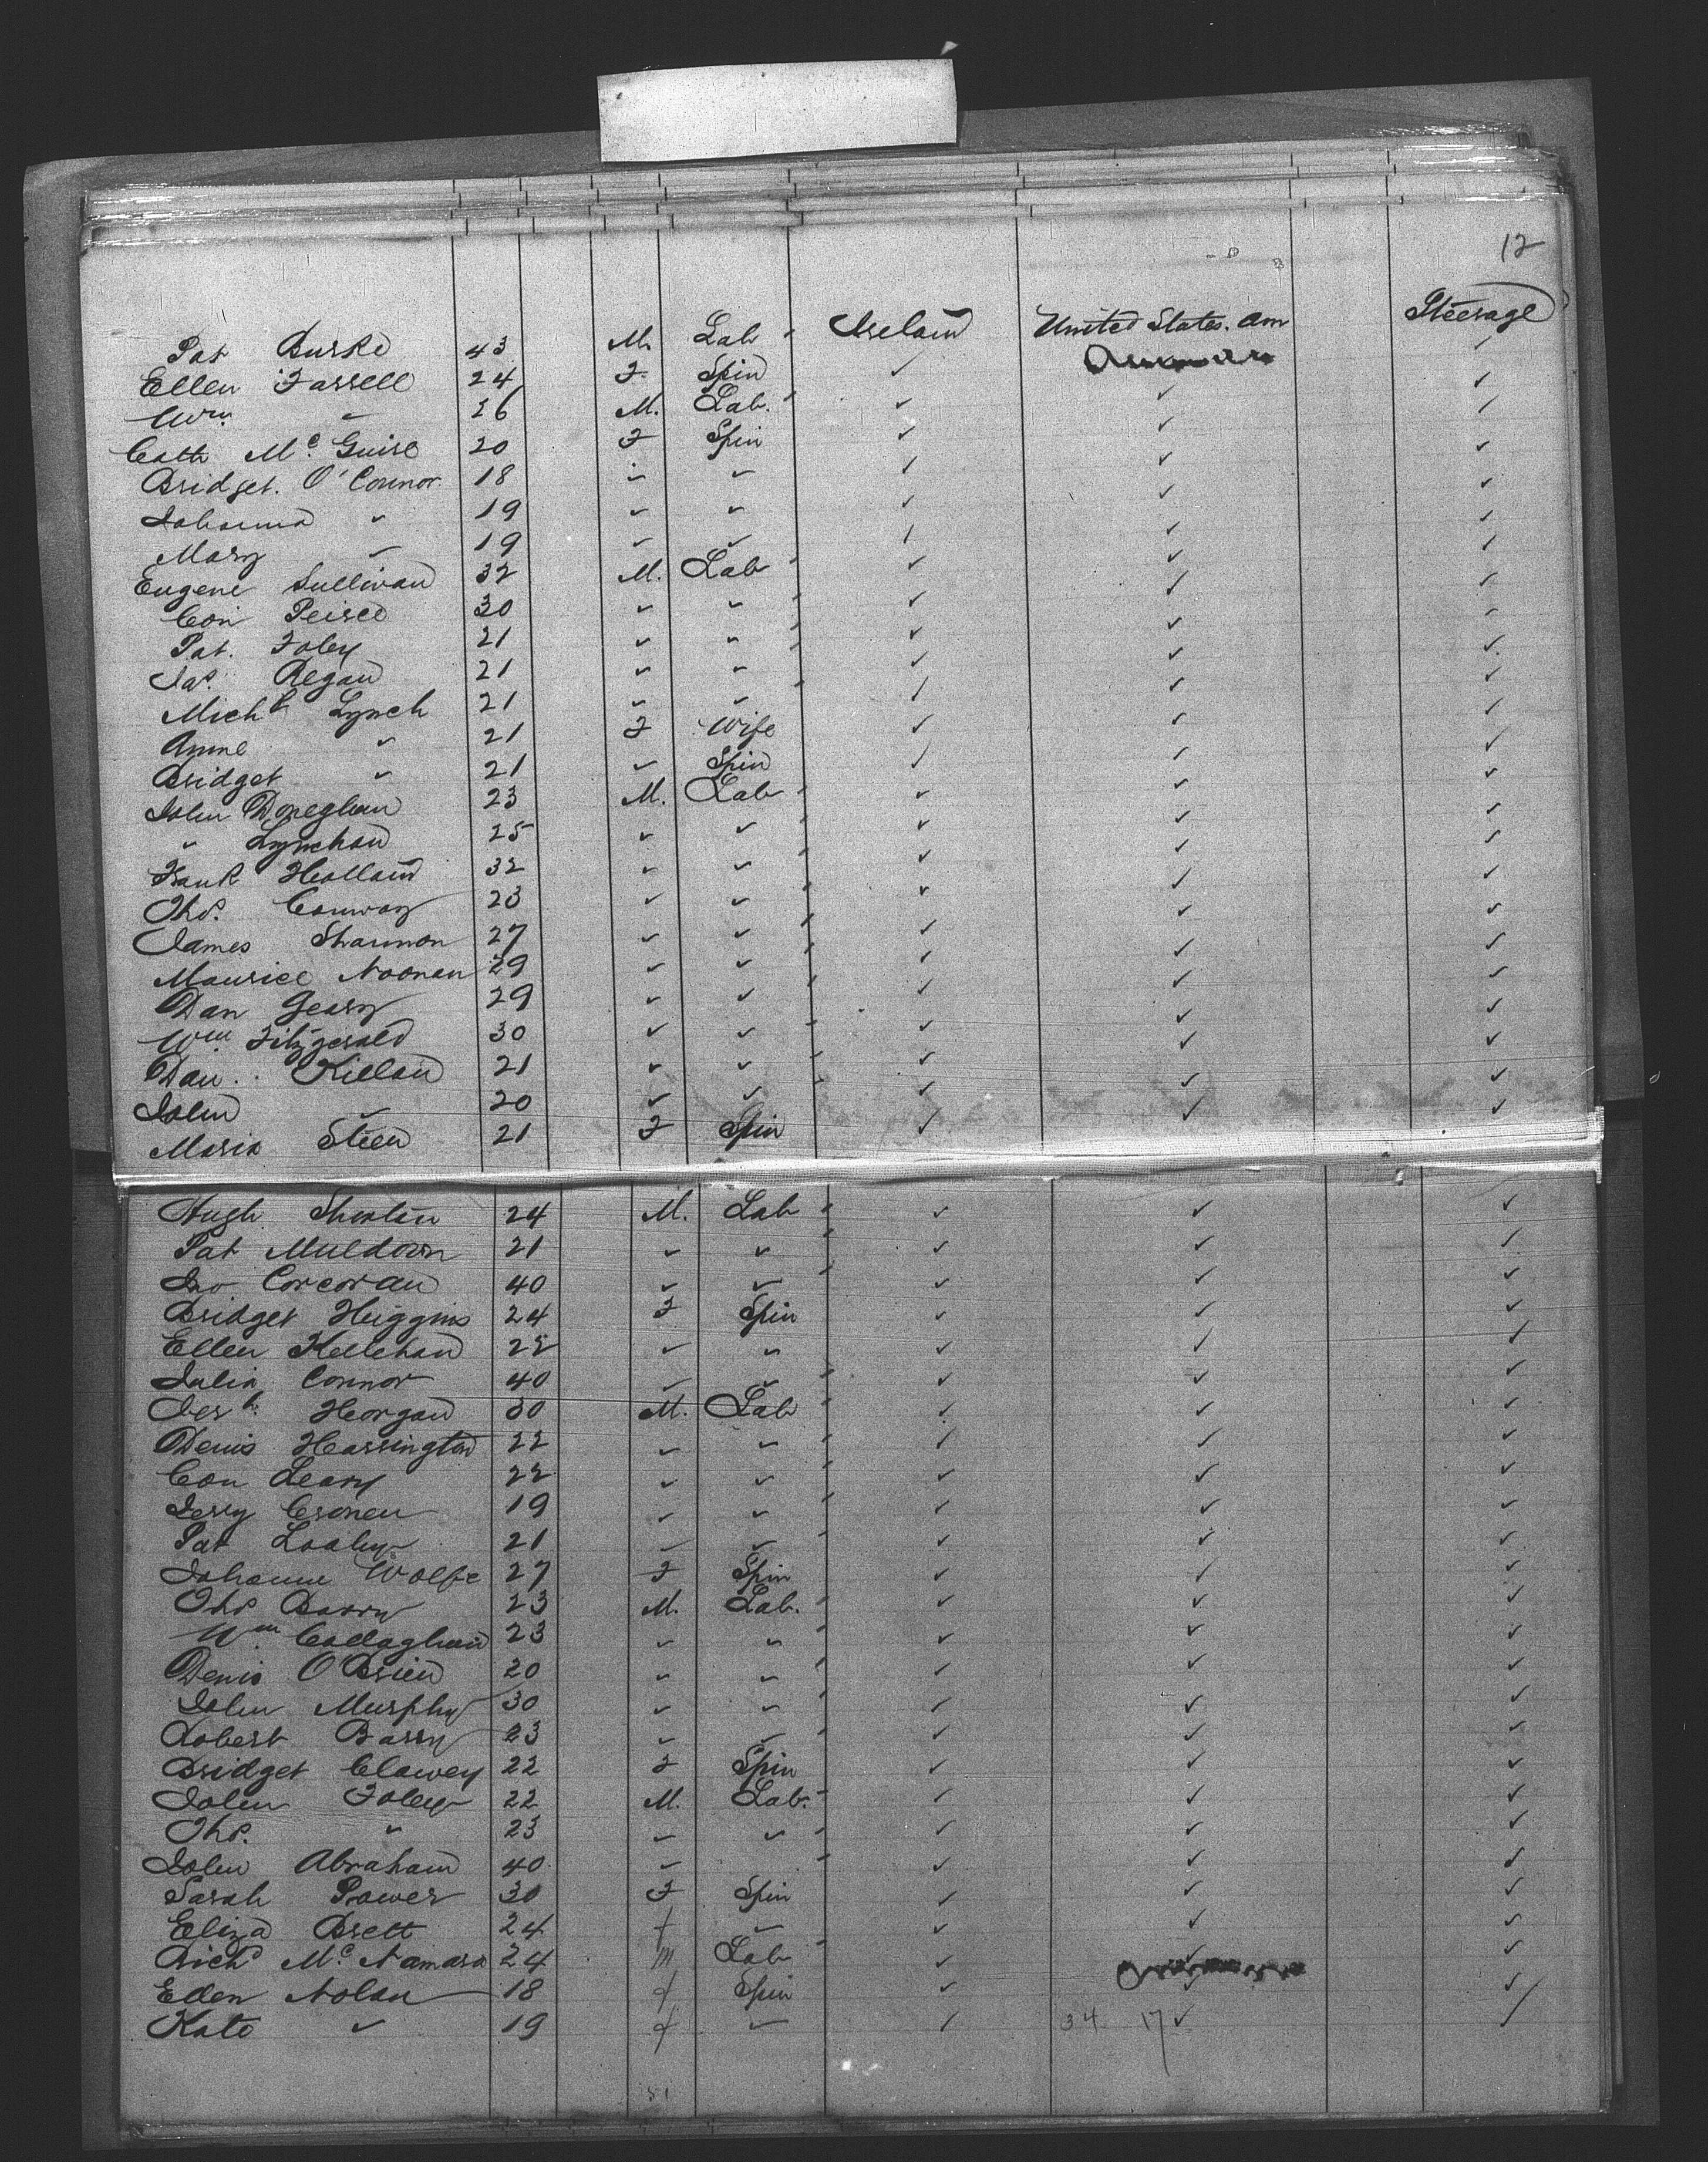 12
Pat Burke 43 M. Lab Ireland United States. Am Steerage
Ellen Farrell 24 F. Spin ✓ ✓ ✓
Wm. " 26 M. Lab. ✓ ✓ ✓
Cath McGuire 20 F Spin ✓ ✓ ✓
Bridget. O'Connor 18 " " ✓ ✓ ✓
Johanna " 19 " " ✓ ✓ ✓
Mary " 19 " " ✓ ✓ ✓
Eugene Sullivan 32 M. Lab ✓ ✓ ✓
Con Peirce 30 " " ✓ ✓ ✓
Pat. Foley 21 " " ✓ ✓ ✓
Jas. Regan 21 " " ✓ ✓ ✓
Michl Lynch 21 " " ✓ ✓ ✓
Anne " 21 F Wife ✓ ✓ ✓
Bridget " 21 " Spin ✓ ✓ ✓
John Doneghan 23 M. Lab ✓ ✓ ✓
" Lynehan 25 " " ✓ ✓ ✓
Frank Holland 32 " " ✓ ✓ ✓
Thos. Conway 23 " " ✓ ✓ ✓
James Shannon 27 " " ✓ ✓ ✓
Maurice Noonan 29 " " ✓ ✓ ✓
Dan Geary 29 " " ✓ ✓ ✓
Wm Fitzgerald 30 " " ✓ ✓ ✓
Dan. Killan 21 " " ✓ ✓ ✓
John " 20 " " ✓ ✓ ✓
Maria Steen 21 F Spin ✓ ✓ ✓
Hugh 24 M. Lab ✓ ✓ ✓
Pat Muldoon 21 " " ✓ ✓ ✓
Jno Corcoran 40 " " ✓ ✓ ✓
Bridget Huggins 24 F Spin ✓ ✓ ✓
Ellen Kellehan 22 " " ✓ ✓ ✓
Julia Connor 40 " " ✓ ✓ ✓
Jerh. Horgan 30 M. Lab ✓ ✓ ✓
Denis Harrington 22 " " ✓ ✓ ✓
Con Leary 22 " " ✓ ✓ ✓
Jerry Cronen 19 " " ✓ ✓ ✓
Pat 21 " " ✓ ✓ ✓
Johanna Wolfe 27 F Spin ✓ ✓ ✓
Thos Barry 23 M. Lab. ✓ ✓ ✓
Wm. Callaghan 23 " " ✓ ✓ ✓
Denis O'Brien 20 " " ✓ ✓ ✓
John Murphy 30 " " ✓ ✓ ✓
Robert Barry 23 " " ✓ ✓ ✓
Bridget Clawey 22 F Spin ✓ ✓ ✓
John Foley 22 M. Lab. ✓ ✓ ✓
Thos. " 23 " " ✓ ✓ ✓
John Abraham 40 " ✓ ✓ ✓
Sarah Power 30 F Spin ✓ ✓ ✓
Eliza Brett 24 f " ✓ ✓ ✓
Richd McNamara 24 m Lab ✓ ✓ ✓
Ellen Nolan 18 f Spin ✓ ✓ ✓
Kate " 19 f " ✓ 34 17 ✓ ✓
51